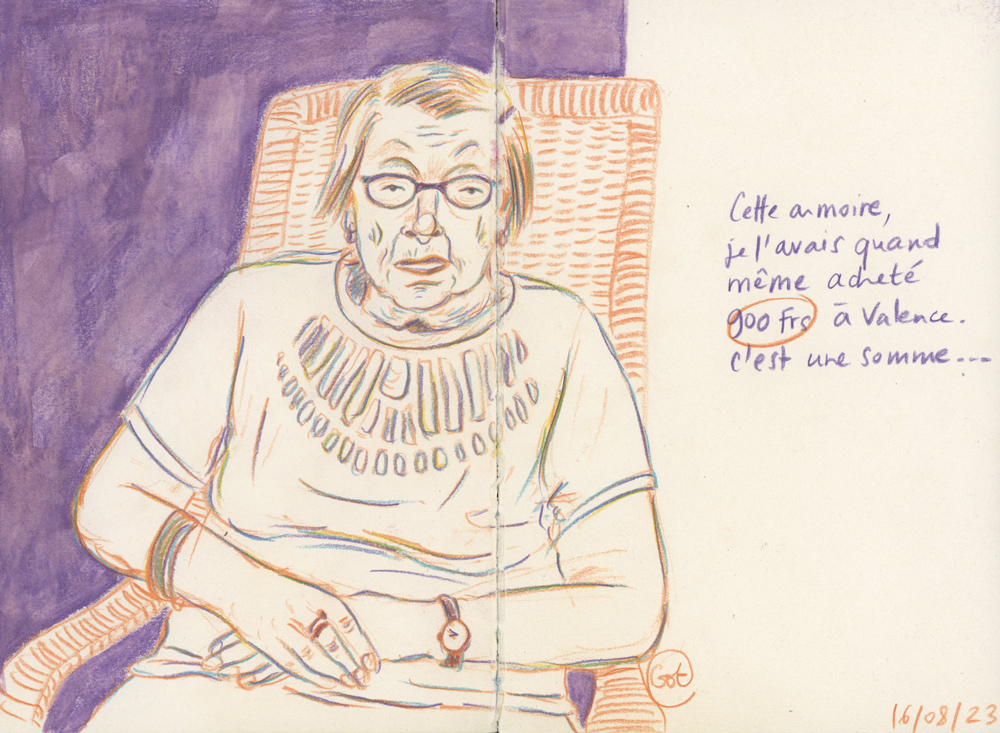 Cette armoire,
je l'avais quand
même acheté
900 Frs à Valence.
c'est une somme...
Got
16/08/23